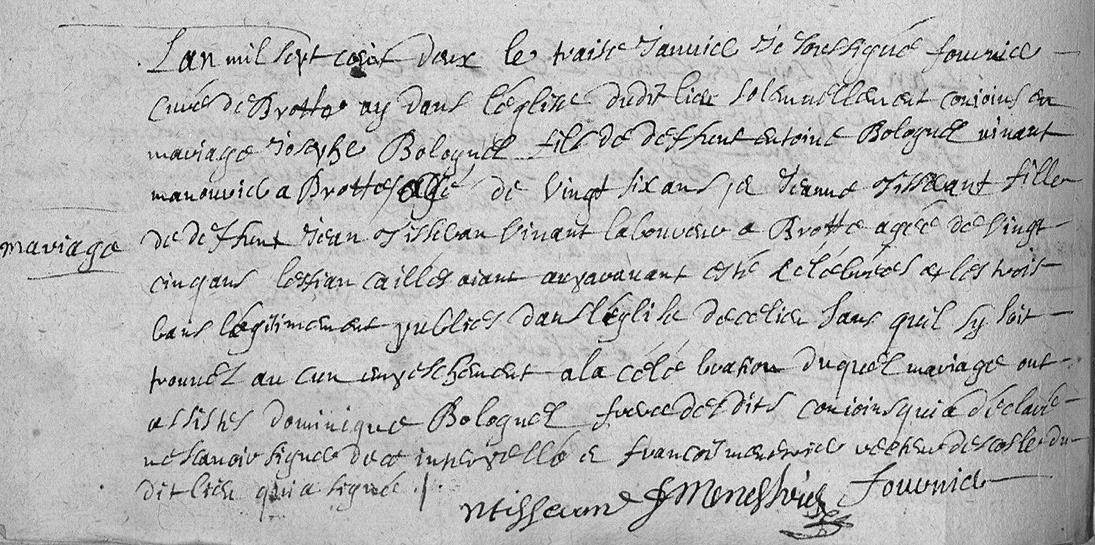 Lan mil sept cent deux le traise Janvier Je soussigné fournier
curé de Brotte ay dans l'église dudit lieu solennellement conjoins en
mariage Joseph Bolognel fils de deffunt entoine Bolognel vivant
manouvrier a Brotte agé de vingt six ans, et Jeanne fille
de deffunt Jean vivant laboureur a Brotte agée de vingt
cinq ans les fiancailles aiant auparavant esté celebrées et les trois
bans legitimement publies dans l'église de ce lieu sans quil sy soit
trouvez aucun empeschement a la celebration duquel mariage ont
assistes dominique Bolognel frere desdits conjoins qui a declaré
ne scavoir signer de ce interpellé et francois recteur descole du
dit lieu qui a signé ./.
fournier
mariage